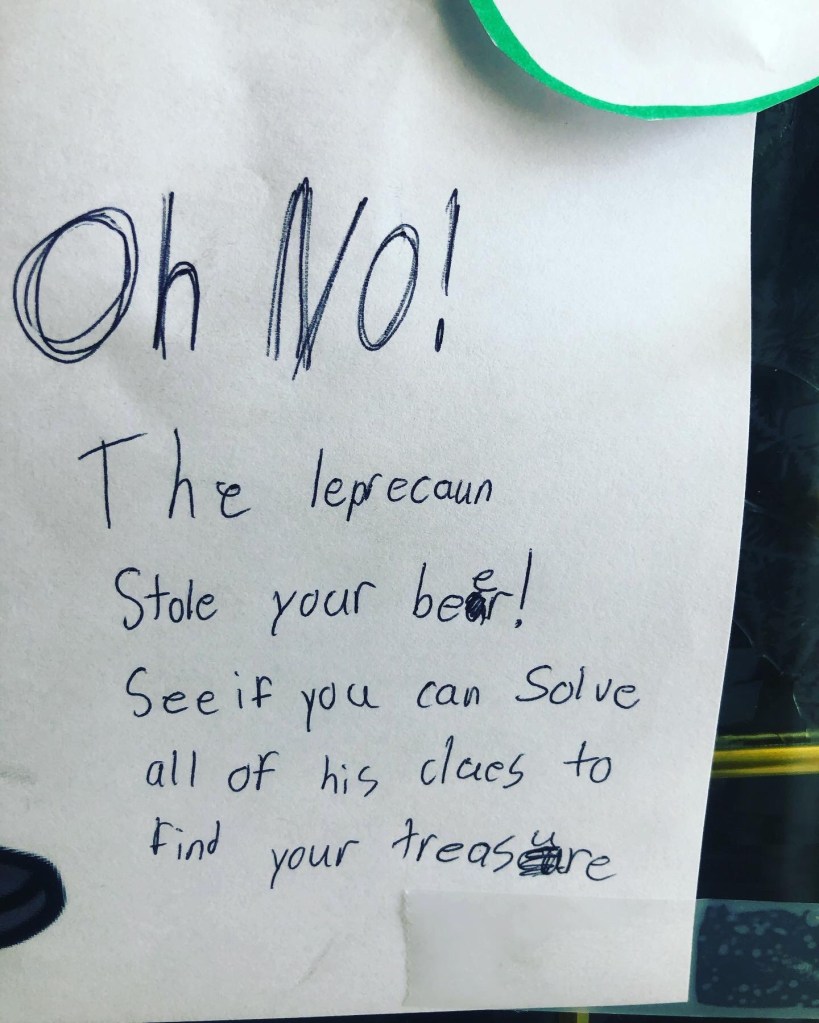 Oh No!
The leprecaun
Stole your beer!
See if you can Solve
all of his clues to
Find your treasure